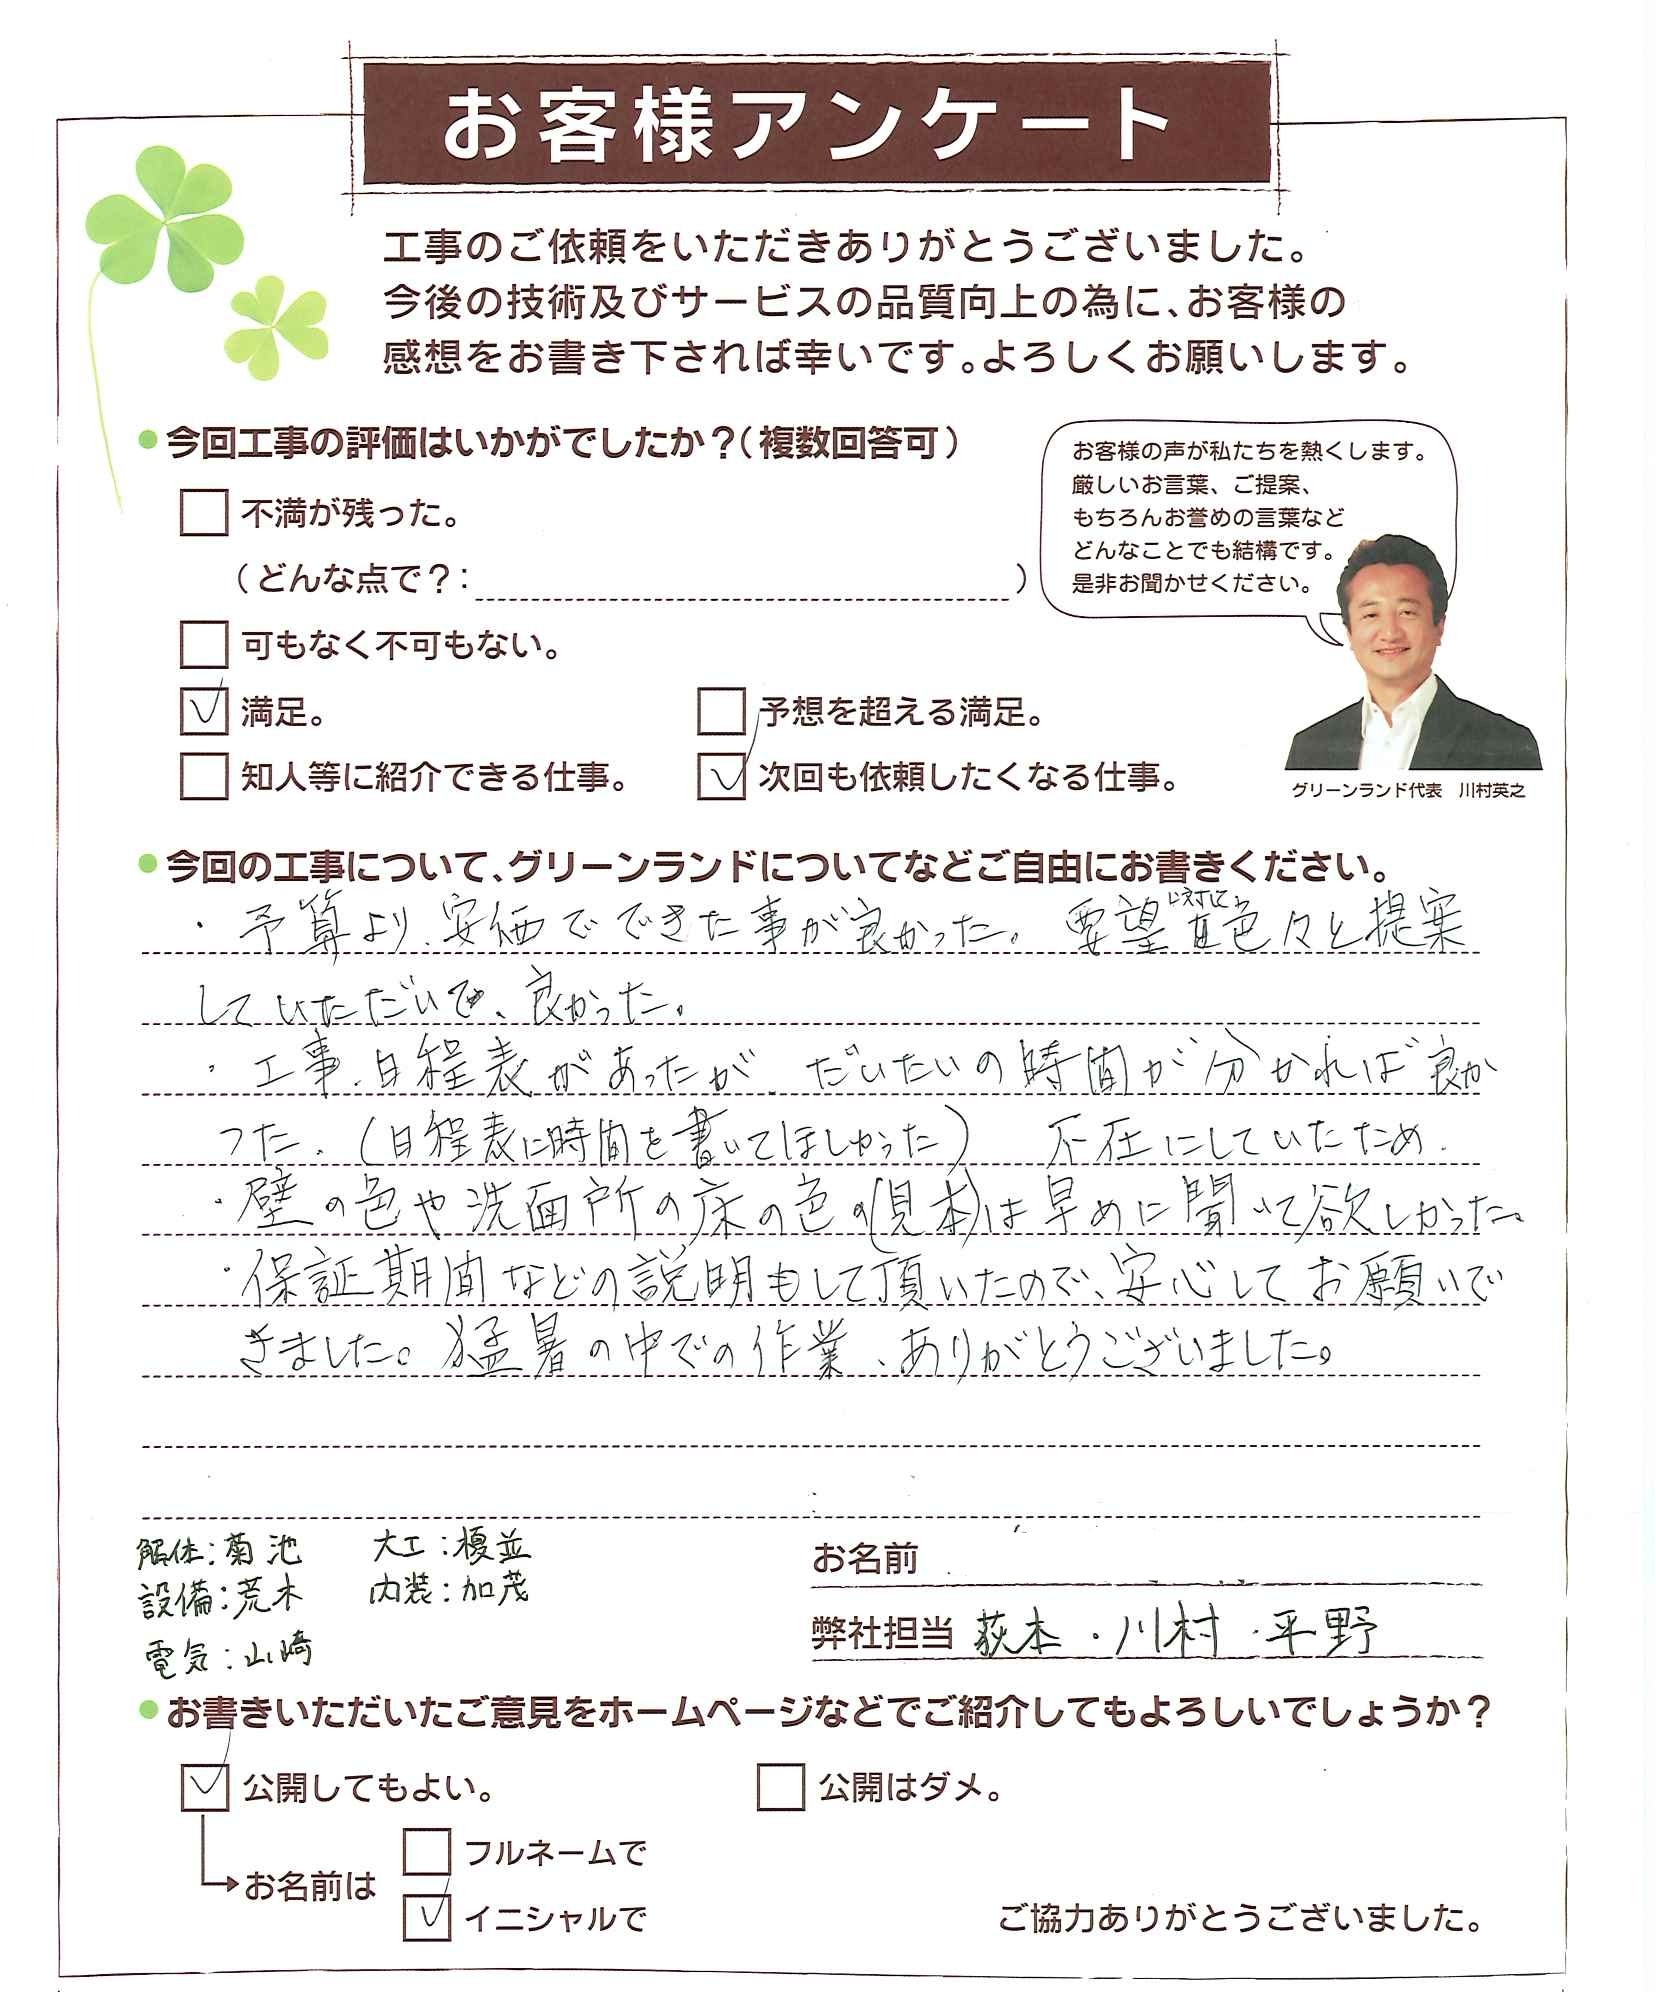 お客様アンケート
工事のご依頼をいただきありがとうございました。
今後の技術及びサービスの品質向上の為に、お客様の
感想をお書き下されば幸いです。よろしくお願いします。
●今回工事の評価はいかがでしたか？（複数回答可）
不満が残った。
（どんな点で？：　　　）
可もなく不可もない。
満足。
予想を超える満足。
知人等に紹介できる仕事。
次回も依頼したくなる仕事。
お客様の声が私たちを熱くします。
厳しいお言葉、ご提案、
もちろんお誉めの言葉など
どんなことでも結構です。
是非お聞かせください。
グリーンランド代表　川村英之
●今回の工事について、グリーンランドについてなどご自由にお書きください。
・予算より、安価でできた事が良かった。要望に対して、色々と提案
していただいて、良かった。
・工事、日程表があったが、だいたいの時間が分かれば良か
った。（日程表に時間を書いてほしかった）　不在にしていたため．
・壁の色や洗面所の床の色の（見本）は早めに聞いて欲しかった。
・保証期間などの説明もして頂いたので、安心してお願いで
きました。猛暑の中での作業、ありがとうございました。
解体：菊池　大工：榎並
設備：荒木　内装：加茂
電気：山崎
お名前
弊社担当 荻本・川村・平野
●お書きいただいたご意見をホームページなどでご紹介してもよろしいでしょうか？
公開してもよい。
公開はダメ。
お名前は
フルネームで
イニシャルで
ご協力ありがとうございました。